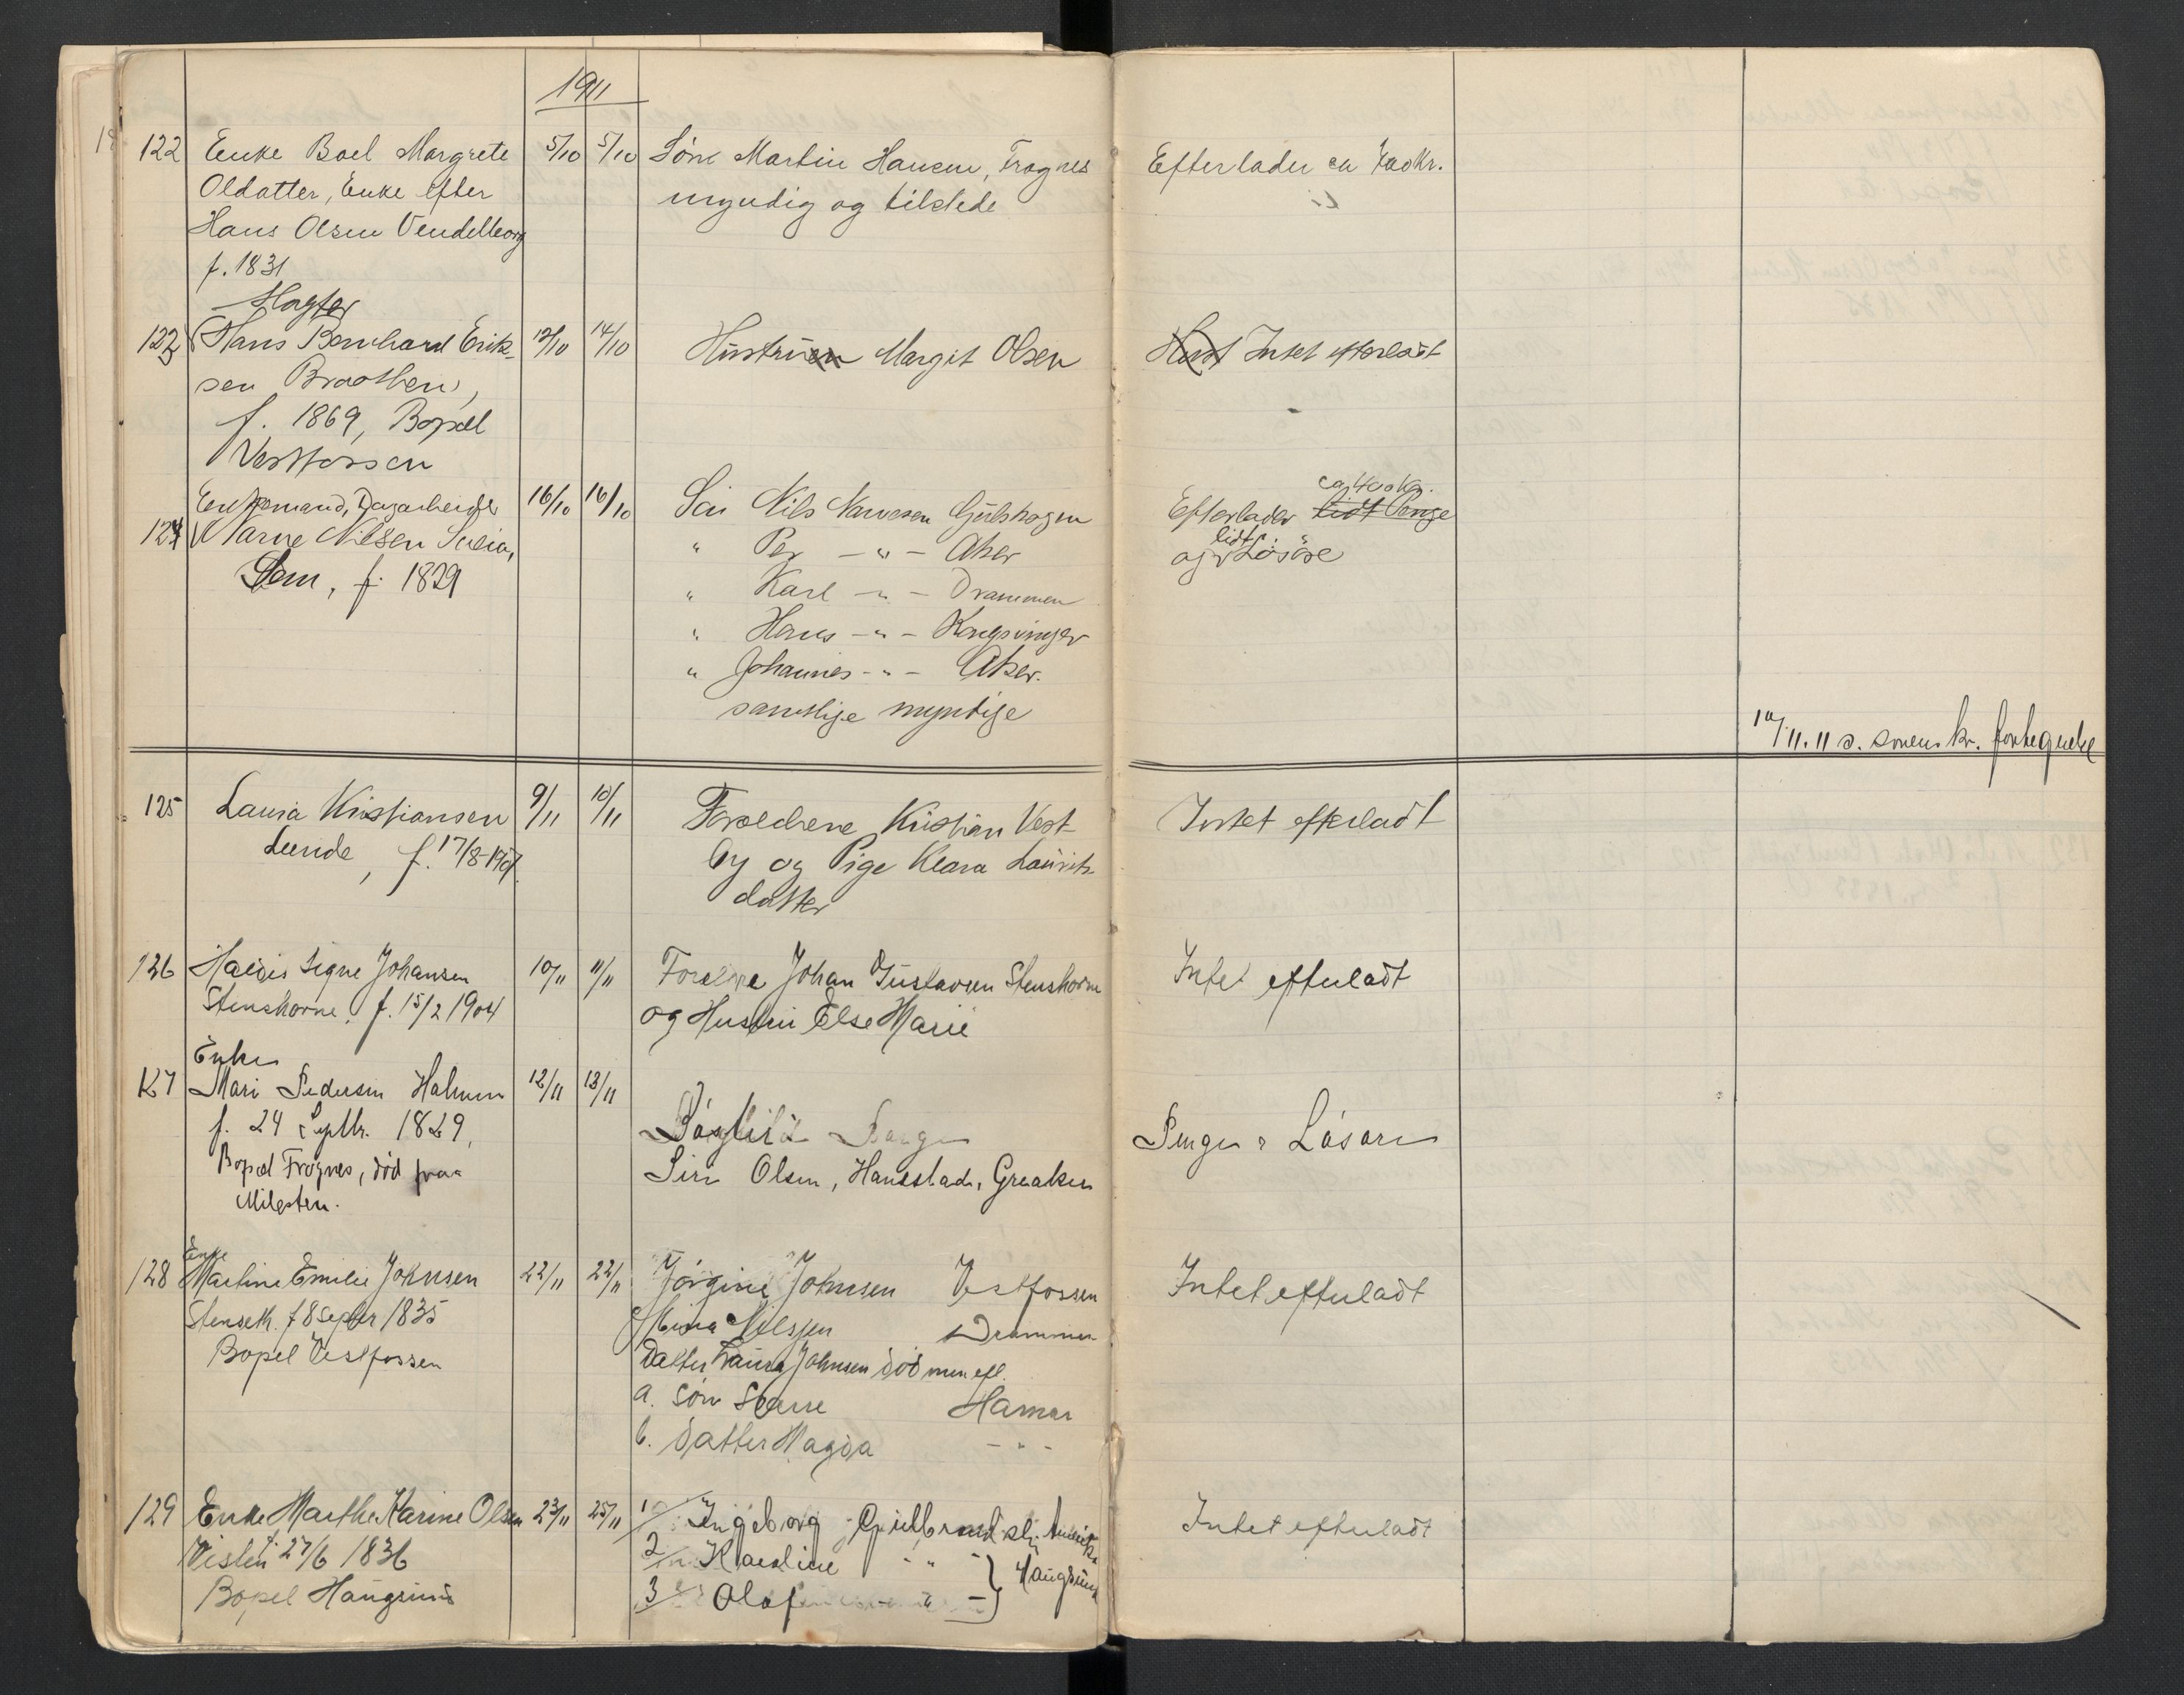 1911
122 Enke Boel Margrete 5/10 5/10 Søn Martin Hansen, Frognes Efterlader ca
Oldatter, Enke efter myndig og tilstede
Hans Olsen Vendelborg
f. 1831
123 Hans Bernhard Erik- 12/10 14/10 Hustruen Margit Olsen Intet efterladt
sen Braathen,
f. 1869, Bopæl
Vestfossen
Enkemand, Dagarbeider 16/10 16/10 Søn Nils Narvesen Gulskogen Efterlader lidt Penge
ca 400 Kr.
124 Narve Nilsen " Per - " - Aker og lidt Løsøre
Sem, f. 1829 " Karl - " - Drammen
" Hans - " - Kongsvinger
" Johannes - " - Aker.
samtlige myndige
10/11.11 s.
125 Laura Kristiansen 9/11 10/11 Forældrene Kristian Vest- Intet efterladt
Lunde, f. 17/8-1907 by og Pige Klara Laurits-
datter
126 Haldis Signe Johansen 10/11 11/11 Forældre Johan Gustavsen Stenshorne Intet efterladt
Stenshorne, f. 15/2 1904 og Hustru Else Marie
Enke
127 Mari Pedersen 12/11 13/11
f. 24 Septbr. 1829, Penger & Løsøre
Bopæl Frognes, død paa Siri Olsen, Greaker
Milesten.
Enke
128 Martine Emilie Johnsen 22/11 22/11 Jørgine Johnsen Vestfossen Intet efterladt
Stenseth. f 8 Septbr 1835 Mina Nilssen Drammen
Bopel Vestfossen Datter Laura Johnsen død men eft.
a. Søn Sverre Hamar
b. Datter Magda - " -
129 Enke Marthe Karine Olsen 23/11 25/11 1 Ingeborg Gulbrandsen Amerika Intet efterladt
f. 27/6 1836 2 Karoline " -
Bopel Haugsund 3 Olaf " - } Haugsund